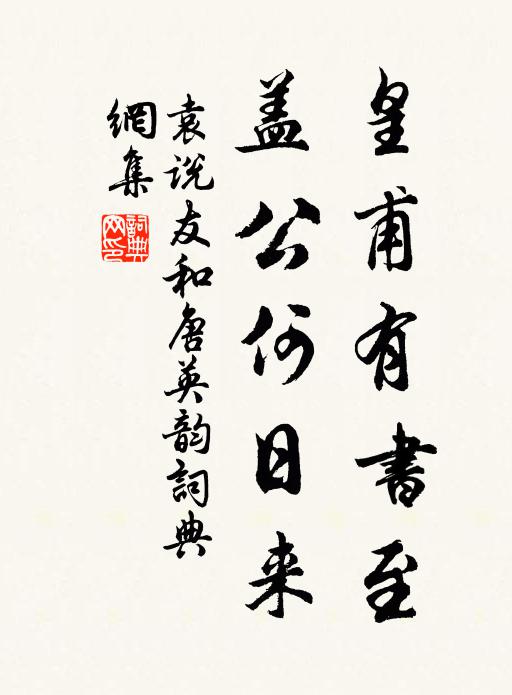 皇甫有書至
盖公何日来
袁说友和唐英韵詞典
網集
詞典網印